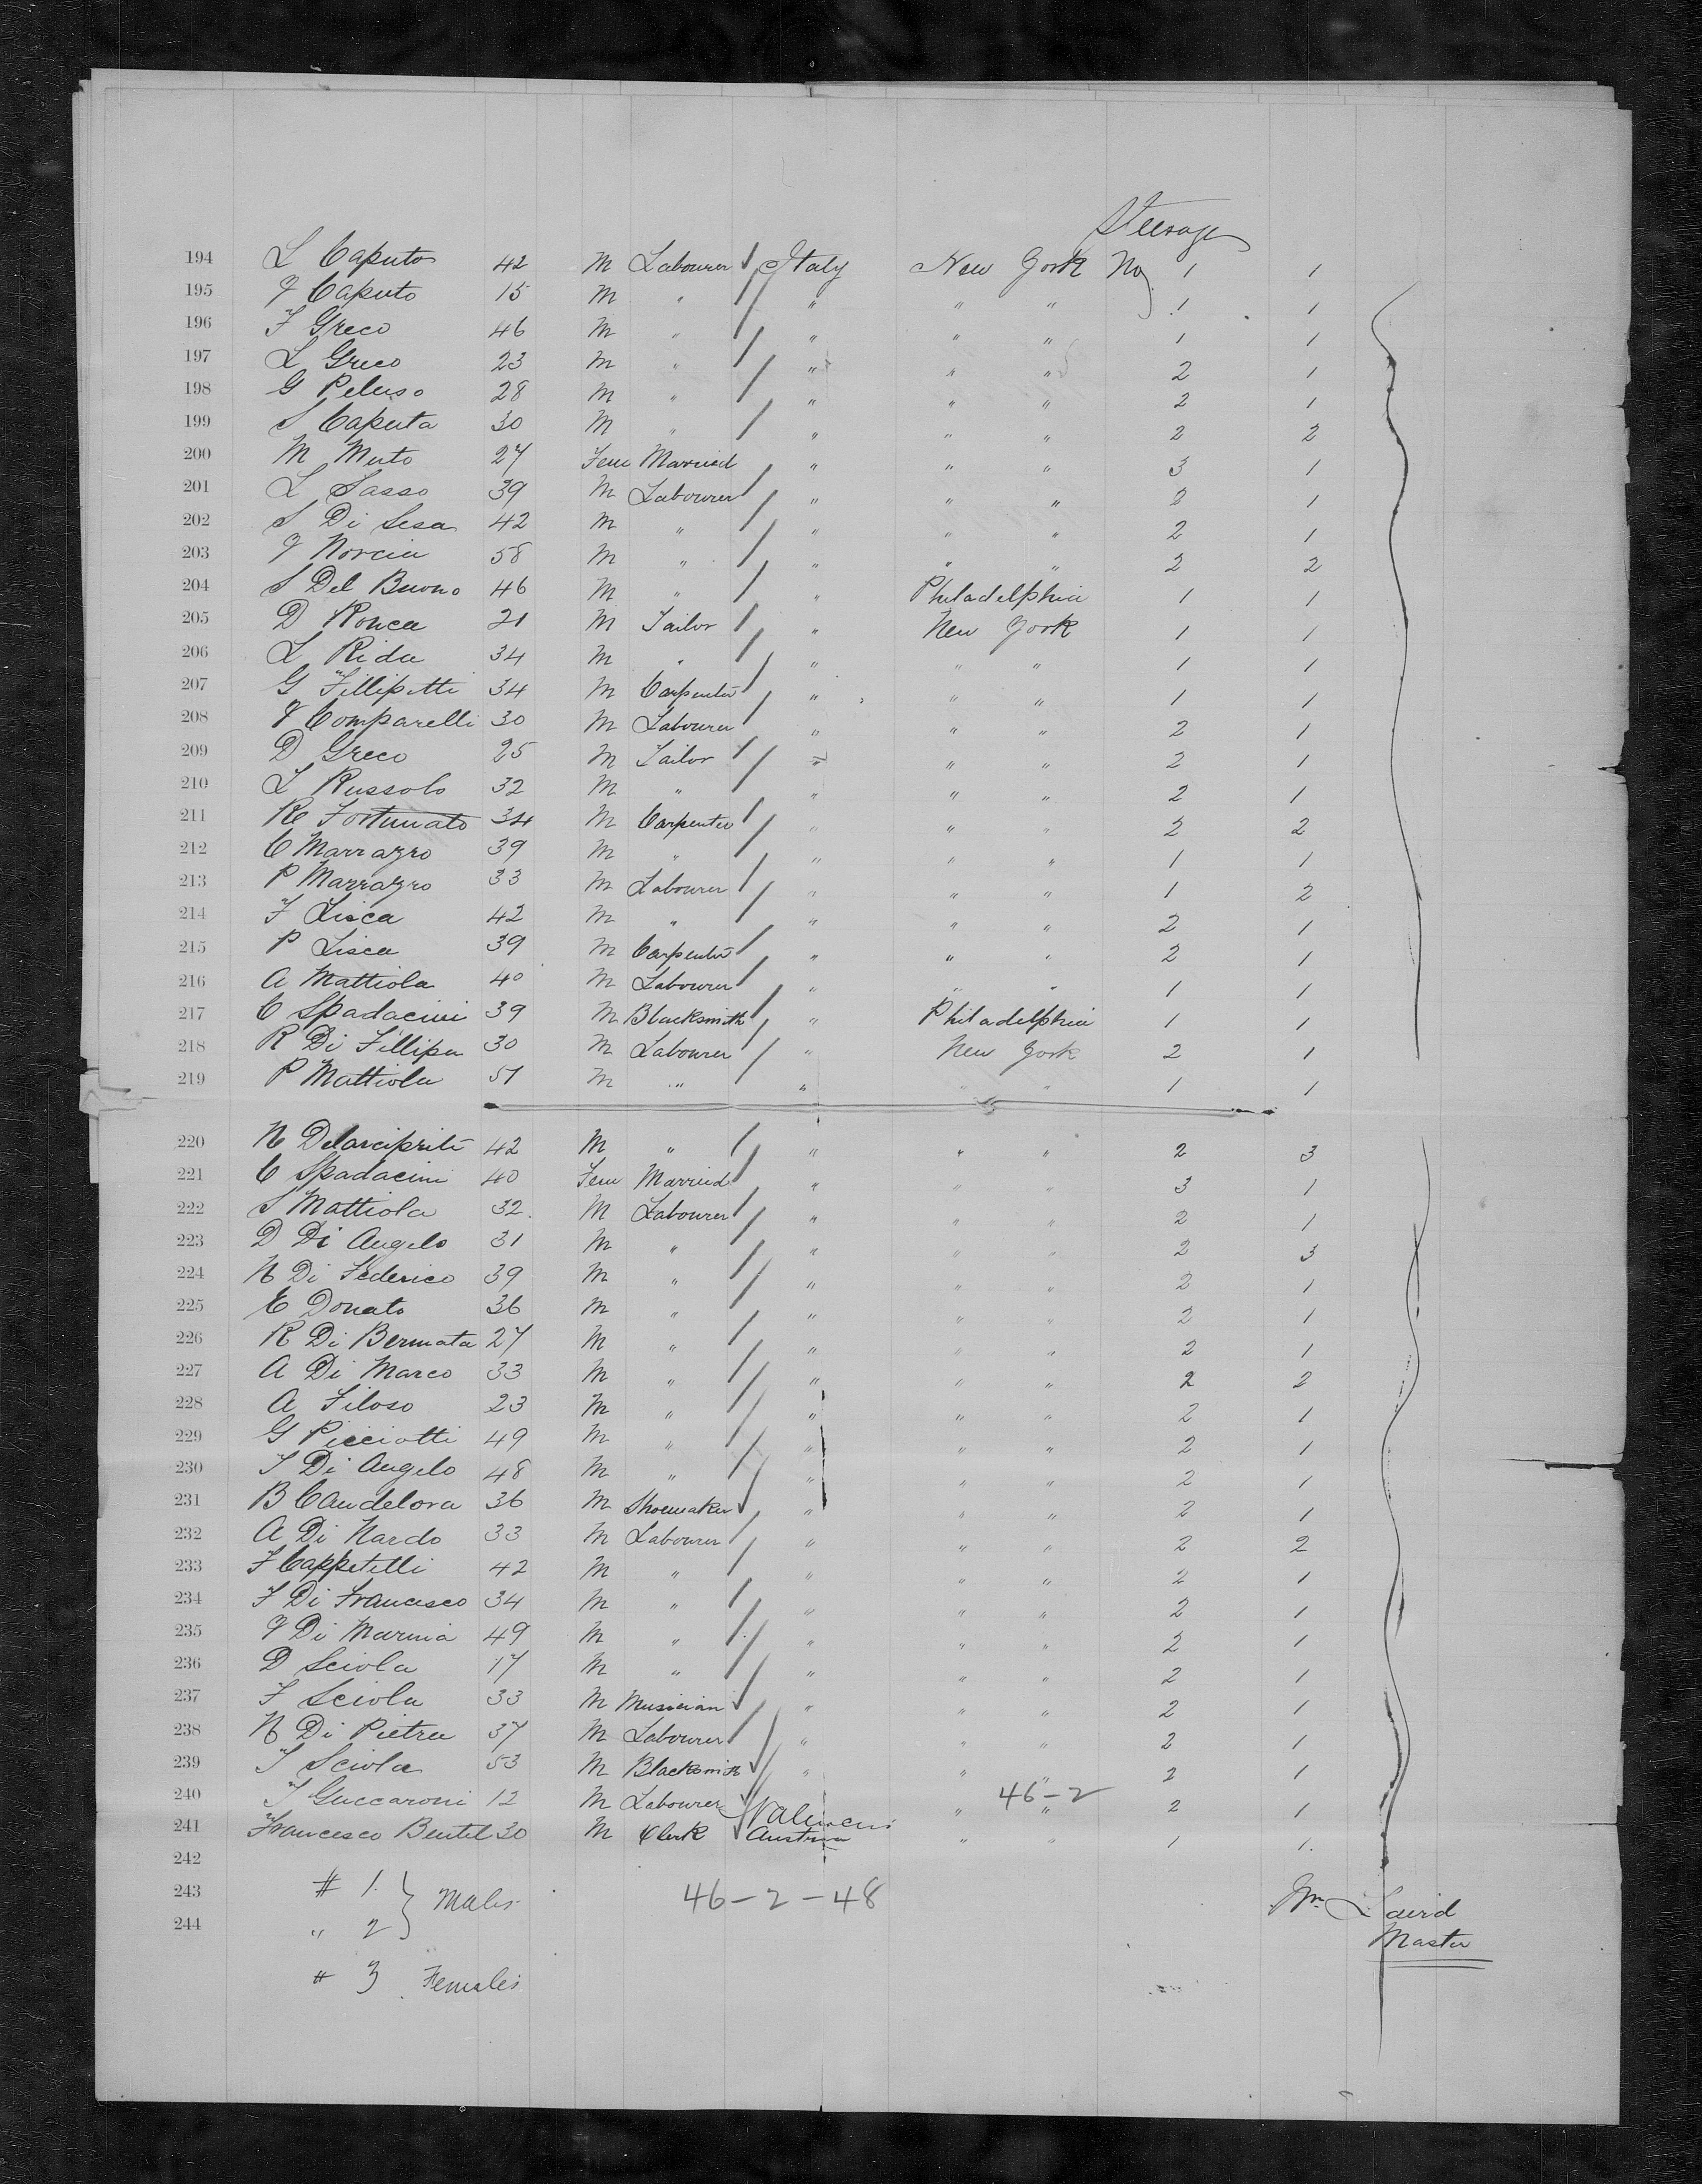 Steerage
194 L Caputo 42 M Labourer Italy New York No 1 1
195 G Caputo 15 M " " " " 1 1
196 F Greco 46 M " " " " 1 1
197 L Greco 23 M " " " " 2 1
198 G Peluso 28 M " " " " 2 1
199 S Caputa 30 M " " " " 2 2
200 M Muto 27 Fem Married " " " 3 1
201 L Sasso 39 M Labourer " " " 2 1
202 S Di Sesa 42 M " " " " 2 1
203 G Norcia 58 M " " " " 2 2
204 S Del Buono 46 M " " Philadelphia 1 1
205 D Ronca 21 M Tailor " New York 1 1
206 L Rida 34 M " " " " 1 1
207 G Fillipetti 34 M Carpenter " " " 1 1
208 G Comparelli 30 M Labourer " " " 2 1
209 D Greco 25 M Tailor " " " 2 1
210 L Russolo 32 M " " " " 2 1
211 R Fortunato 34 M Carpenter " " " 2 2
212 C Marrazzo 39 M " " " " 1 1
213 P Marrazzo 33 M Labourer " " " 1 2
214 F Lisca 42 M " " " " 2 1
215 P Lisca 39 M Carpenter " " " 2 1
216 A Mattiola 40 M Labourer " " " 1 1
217 C Spadacini 39 M Blacksmith " Philadelphia 1 1
218 R Di Fillipa 30 M Labourer " New York 2 1
219 P Mattiola 51 M " " " " 1 1
220 N Delarciprite 42 M " " " " 2 3
221 C Spadacini 40 Fem Married " " " 3 1
222 S Mattiola 32 M Labourer " " " 2 1
223 D Di Angelo 31 M " " " " 2 3
224 N Di Federico 39 M " " " " 2 1
225 E Donato 36 M " " " " 2 1
226 R Di Bermata 27 M " " " " 2 1
227 A Di Marco 33 M " " " " 2 2
228 A Filoso 23 M " " " " 2 1
229 G Picciotti 49 M " " " " 2 1
230 T Di Angelo 48 M " " " " 2 1
231 B Candelora 36 M Shoemaker " " " 2 1
232 A Di Nardo 33 M Labourer " " " 2 2
233 F Cappetelli 42 M " " " " 2 1
234 F Di Francesco 34 M " " " " 2 1
235 G Di Marina 49 M " " " " 2 1
236 D Sciola 17 M " " " " 2 1
237 F Sciola 33 M Musician " " " 2 1
238 N Di Pietra 37 M Labourer " " " 2 1
239 T Sciola 53 M Blacksmith " " " 2 1
46-2
240 T Guccaroni 12 M Labourer " " 2 1
241 Francesco Bentel 30 M Clerk Austria " " 1 1
242
243 # 1 } Males 46-2-48 Wm Laird
244 " 2 Master
# 3 Females